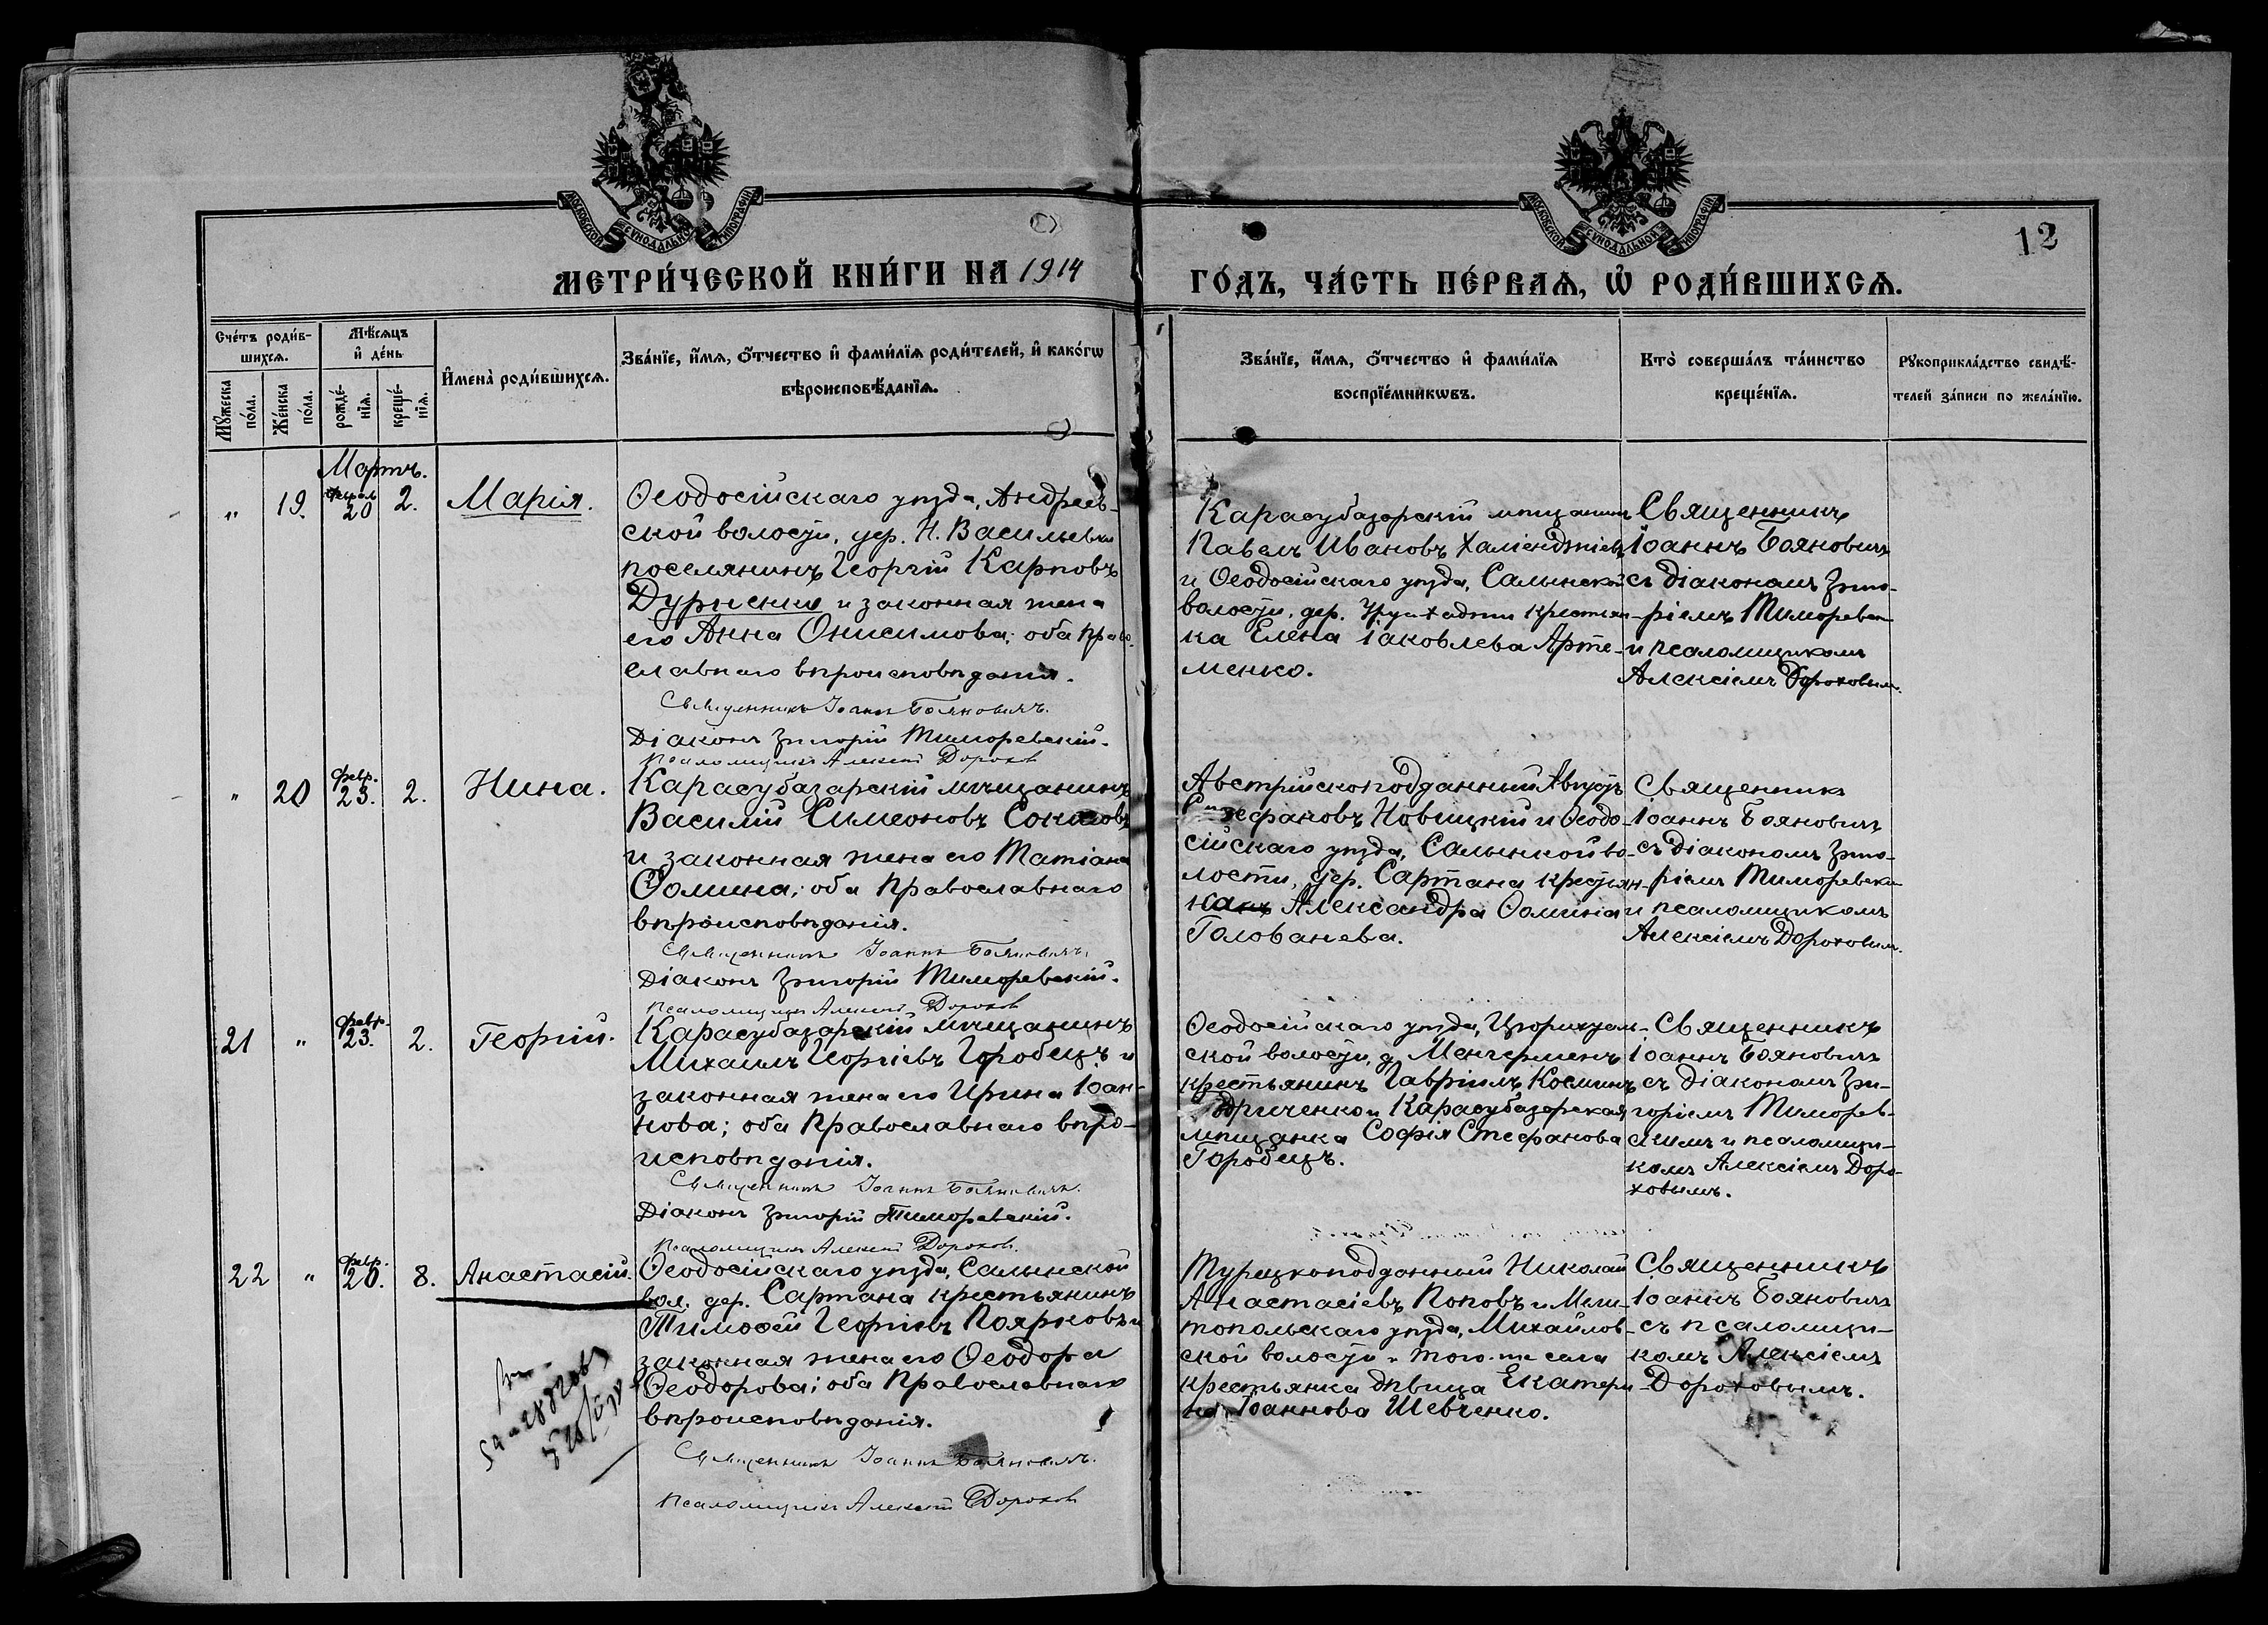 МОСКОВСКОЙ СѴНОДАЛЬНОЙ ТИПОГРАФІИ
МОСКОВСКОЙ СѴНОДАЛЬНОЙ ТИПОГРАФІИ
12
МЕТРИ́ЧЕСКОЙ КНИ́ГИ НА 1914
ГО́ДЪ, ЧА́СТЬ ПЕ́РВАѦ, Ѡ҆ РОДИ́ВШИХСѦ.
Сче́тъ роди́в-
шихсѧ.
Мꙋ́жеска по́ла.
Же́нска по́ла.
Мѣ́сѧцъ
и҆ де́нь
рожде́-
нїѧ.
креще́-
нїѧ.
И҆мена̀ роди́вшихсѧ.
Зва́нїе, и҆́мѧ, ѻ҆́тчество и҆ фами́лїѧ роди́телей, и҆ како́гѡ
вѣроисповѣ́данїѧ.
Зва́нїе, и҆́мѧ, ѻ҆́тчество и҆ фами́лїѧ
воспрїе́мникѡвъ.
Кто̀ соверша́лъ та́инство
креще́нїѧ.
Рꙋкоприкла́дство свидѣ́-
телей за́писи по жела́нїю.
Мартъ.
„ 19. 20 2. Марія.
Ѳеодосійскаго уѣзда, Андреев-
ской волости, дер. Н. Васильевки
поселянинъ Георгій Карповъ
и законная жена
его Анна Онисимова; оба право-
славнаго вѣроисповѣданія.
Священникъ Іоаннъ Бояновичъ.
Діаконъ Григорій Тиморевскій.
Псаломщикъ Алексій Дорохов
Карасубазарскій мѣщанинъ
Павелъ Ивановъ
и Ѳеодосійскаго уѣзда, Салынской
волости, дер. крестьян-
ка Елена Іаковлева Арте-
менко.
Священникъ
Іоаннъ Бояновичъ
съ діакономъ Григо-
ріемъ Тиморевским
и псаломщикомъ
Алексіемъ Дороховым.
„ 20 февр. 23. 2. Нина.
Карасубазарскій мѣщанинъ
Василій Симеоновъ Соколовъ
и законная жена его Татіана
Ѳомина; оба Православнаго
вѣроисповѣданія.
Священникъ Іоаннъ Бояновичъ.
Діаконъ Григорій Тиморевскій.
Псаломщикъ Алексій Дорохов
Австрійскоподданный Августъ
Стефановъ Новицкій и Ѳеодо-
сійскаго уѣзда, Салынской во-
лости, дер. Сартана крестьян-
ка Александра Ѳомина
Голованева.
Священникъ
Іоаннъ Бояновичъ
съ діакономъ Григо-
ріемъ Тиморевским
и псаломщикомъ
Алексіемъ Дороховым.
21 „ февр. 23. 2. Георгій.
Карасубазарскій мѣщанинъ
Михаилъ Георгіевъ Горобецъ и
законная жена его Ирина Іоан-
нова; оба Православнаго вѣро-
исповѣданія.
Священникъ Іоаннъ Бояновичъ.
Діаконъ Григорій Тиморевскій.
Псаломщикъ Алексій Дорохов.
Ѳеодосійскаго уѣзда,
ской волости, д. Менгерменъ
крестьянинъ Гавріилъ Косминъ
и Карасубазарская
мѣщанка Софія Стефанова
Горобецъ.
Священникъ
Іоаннъ Бояновичъ
съ діакономъ Гри-
горіемъ Тиморев-
скимъ и псаломщи-
комъ Алексіемъ Доро-
ховымъ.
22 „ февр. 20. 8. Анастасій.
Ѳеодосійскаго уѣзда, Салынской
вол. дер. Сартана крестьянинъ
Тимофей Георгіевъ Поярковъ и
законная жена его Ѳеодора
Ѳеодорова; оба Православнаго
вѣроисповѣданія.
Священникъ Іоаннъ Бояновичъ.
Псаломщикъ Алексій Дорохов
Турецкоподданный Николай
Анастасіевъ Поповъ и Мели-
топольскаго уѣзда, Михайлов-
ской волости и того-же села
крестьянка дѣвица Екатери-
на Іоаннова Шевченко.
Священникъ
Іоаннъ Бояновичъ
съ псаломщи-
комъ Алексіемъ
Дороховымъ.